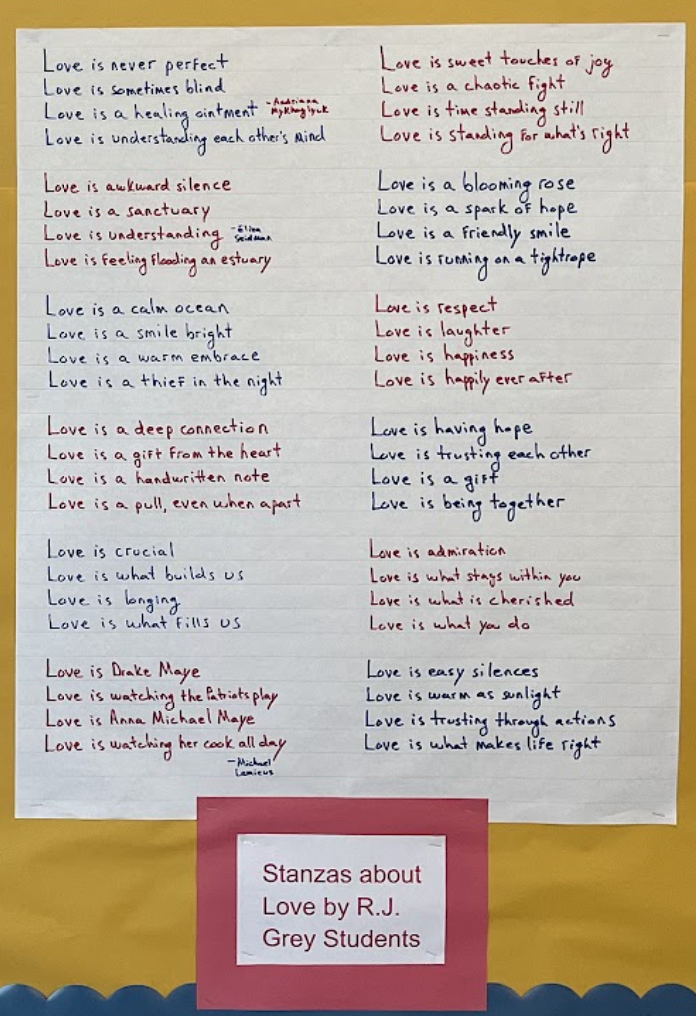 Love is never perfect
Love is sometimes blind
Love is a healing ointment
Love is understanding each other's mind
Love is awkward silence
Love is a sanctuary
Love is understanding -Ellen Seidman
Love is feeling flooding an estuary
Love is a calm ocean
Love is a smile bright
Love is a warm embrace
Love is a thief in the night
Love is a deep connection
Love is a gift from the heart
Love is a handwritten note
Love is a pull, even when apart
Love is crucial
Love is what builds us
Love is longing
Love is what fills us
Love is Drake Maye
Love is watching the Patriots play
Love is Anna Michael Maye
Love is watching her cook all day
-Michael
Love is sweet touches of joy
Love is a chaotic fight
Love is time standing still
Love is standing for what's right
Love is a blooming rose
Love is a spark of hope
Love is a friendly smile
Love is running on a tightrope
Love is respect
Love is laughter
Love is happiness
Love is happily ever after
Love is having hope
Love is trusting each other
Love is a gift
Love is being together
Love is admiration
Love is what stays within you
Love is what is cherished
Love is what you do
Love is easy silences
Love is warm as sunlight
Love is trusting through actions
Love is what makes life right
Stanzas about
Love by R.J.
Grey Students